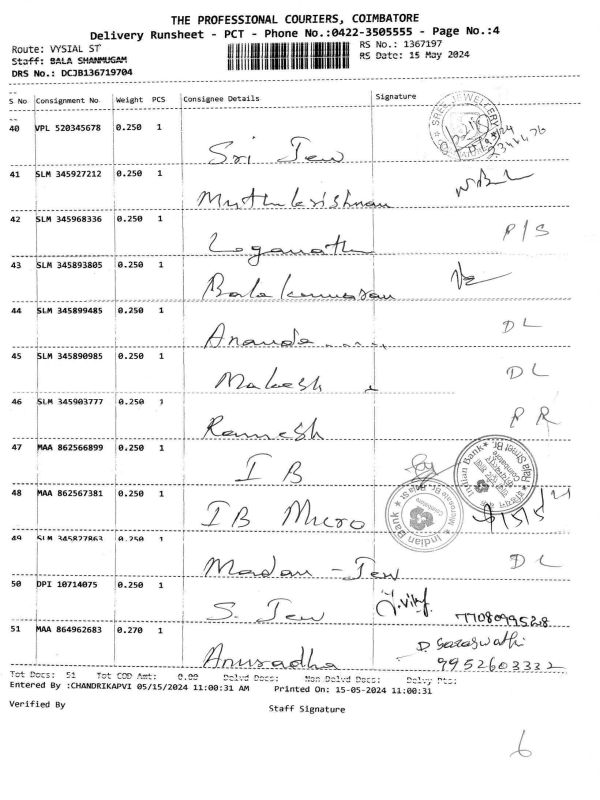 THE PROFESSIONAL COURIERS, COIMBATORE
Delivery Runsheet - PCT - Phone No.:0422-3505555 - Page No.:4
Route: VYSIAL ST
RS No.: 1367197
Staff: BALA SHANMUGAM
RS Date: 15 May 2024
DRS No.: DCJB136719704
S No Consignment No Weight PCS Consignee Details Signature
40 VPL 520345678 0.250 1
Sri Jew
41 SLM 345927212 0.250 1
Muthukrishnan
42 SLM 345968336 0.250 1
Loganath P/S
43 SLM 345893805 0.250 1
Balakumaran
44 SLM 345899485 0.250 1
Ananda..... DL
45 SLM 345890985 0.250 1
Mahesh DL
46 SLM 345903777 0.250 1
Ramesh RR
47 MAA 862566899 0.250 1
IB
48 MAA 862567381 0.250 1
IB Micro
Indian Bank
49 SLM 345827863 0.250 1
Madan - Jew DL
50 DPI 10714075 0.250 1
S. Jew
51 MAA 864962683 0.270 1
D. Saraswathi
Anuradha 9952603332
Tot Docs: 51 Tot COD Amt: 0.00 Delvd Docs: Non Delvd Docs: Delvy Pts:
Entered By :CHANDRIKAPVI 05/15/2024 11:00:31 AM Printed On: 15-05-2024 11:00:31
Verified By
Staff Signature
6